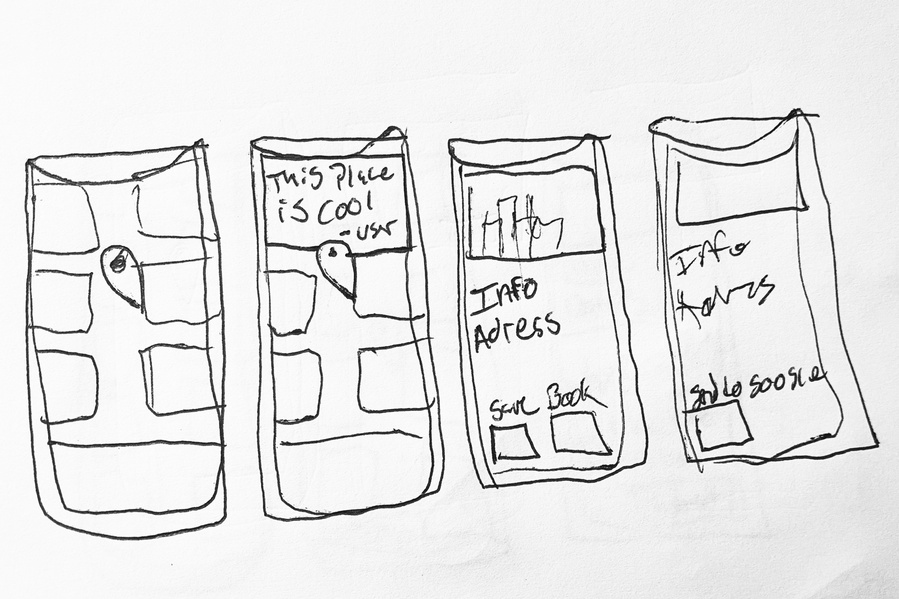 This Place
is cool
- user
Info
Adress
Save Book
Info
send to google